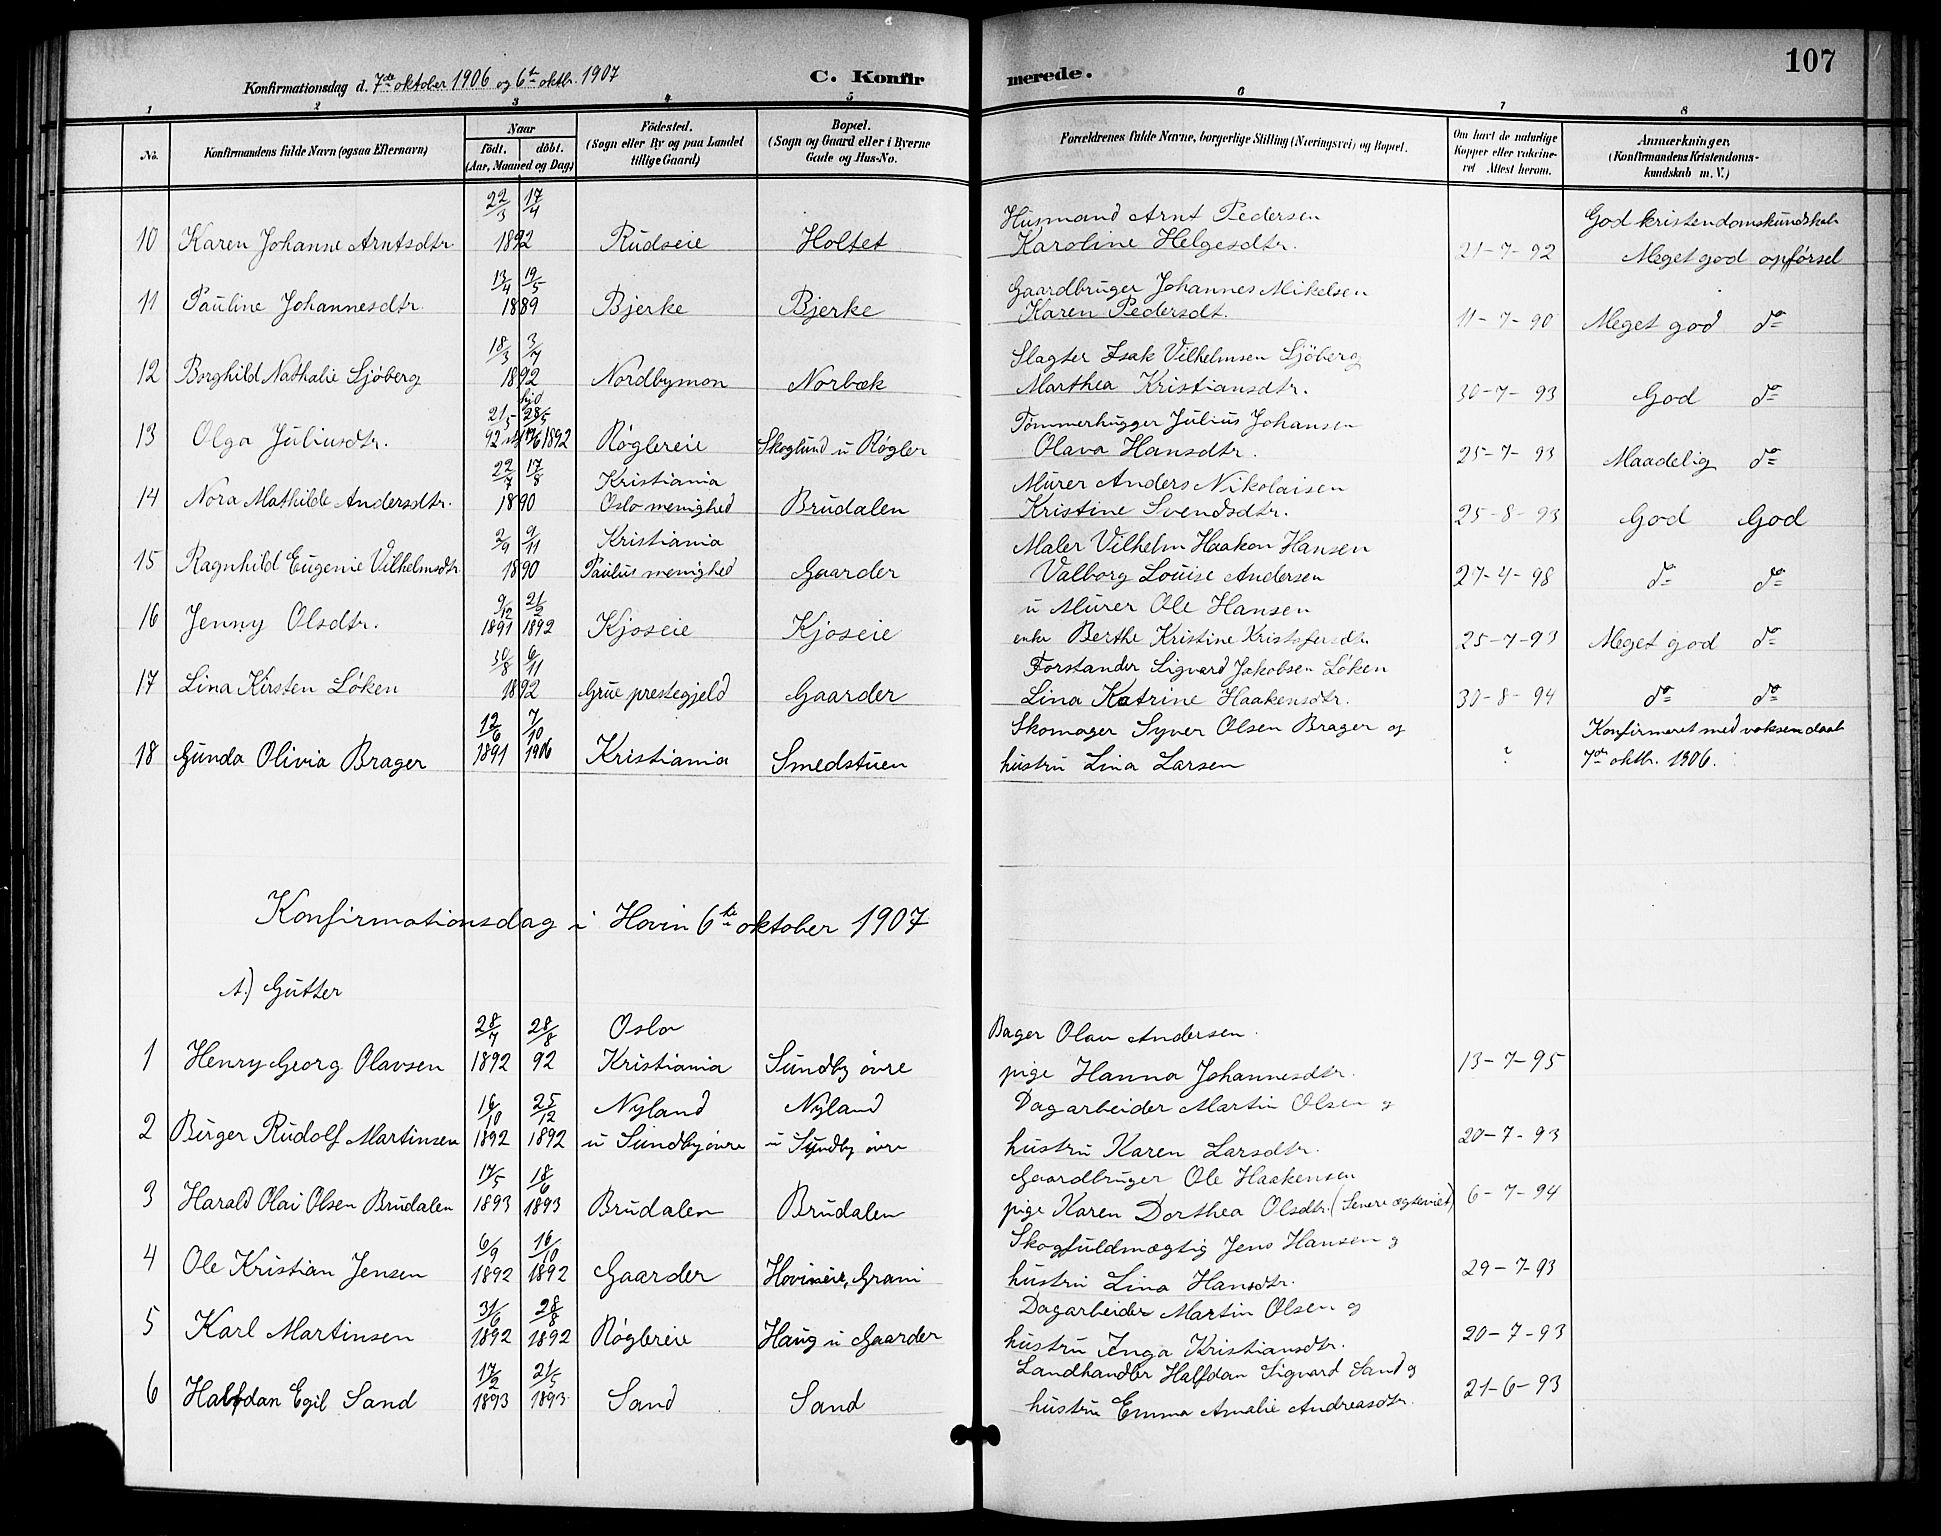 107
Konfirmationsdag d. 7de oktober 1906 og 6te oktbr. 1907
C. Konfirmerede.
1 2 3 4 5 6 7 8
No.
Konfirmandens fulde Navn (ogsaa Efternavn)
Naar
födt. döbt.
(Aar, Maaned og Dag)
Födested.
(Sogn eller By og paa Landet
tillige Gaard)
Bopæl.
(Sogn og Gaard eller i Byerne
Gade og Hus-No.
Forældrenes fulde Navne, borgerlige Stilling (Næringsvei) og Bopæl.
Om havt de naturlige
Kopper eller vakcine-
ret Attest herom.
Anmærkninger.
(Konfirmandens Kristendoms-
kundskab m. V.)
22/3 17/4 Husmand Arnt Pedersen God kristendomskundskab
10 Karen Johanne Arntsdtr 1892 Rudseie Holtet Karoline Helgesdtr. 21-7-92 Meget god opførsel
13/4 19/5 Gaardbruger Johannes Mikelsen
11 Pauline Johannesdtr. 1889 Bjerke Bjerke Karen Pedersdt. 11-7-90 Meget god do
18/3 3/7 Slagter Isak Vilhelmsen Sjöberg
12 Borghild Nathalie Sjöberg 1892 Nordbymon Norbæk Marthea Kristiansdtr. 30-7-93 God do
21/5 hjd 28/5 Tømmerhugger Julius Johansen
13 Olga Juliusdtr. 92 1892 Røglereie Skoglund u Røgler Olava Hansdtr. 25-7-93 Maadelig do
22/7 17/8 Kristiania Murer Anders Nikolaisen
14 Nora Mathilde Andersdtr. 1890 Oslo menighed Brudalen Kristine Svendsdtr. 25-8-93 God God
2/9 9/11 Kristiania Maler Vilhelm Haakon Hansen
15 Ragnhild Eugenie Vilhelmsdtr 1890 Paulus menighed Gaarder Valborg Louise Andersen 27-4-98 do do
9/12 21/2 u Murer Ole Hansen
16 Jenny Olsdtr. 1891 1892 Kjoseie Kjoseie enke Berthe Kristine Kristofersdtr. 25-7-93 Meget god do
30/8 6/11 Forstander Sigvard Jakobsen Løken
17 Lina Kirsten Løken 1892 Grue prestegjeld Gaarder Lina Katrine Haakensdtr. 30-8-94 do do
12/6 7/10 Skomager Syver Olsen Brager og Konfirmeret med voksendaab
18 Gunda Olivia Brager 1891 1906 Kristiania Smedstuen hustru Lina Larsen ? 7de oktbr. 1906.
Konfirmationsdag i Hovin 6te oktober 1907
A.) Gutter
28/7 28/8 Oslo Bager Olav Andersen.
1 Henry Georg Olavsen 1892 92 Kristiania Sundby øvre pige Hanna Johannesdtr. 13-7-95
16/10 25/12 Nyland Nyland Dagarbeider Martin Olsen og
2 Birger Rudolf Martinsen 1892 1892 u Sundby øvre u Sundby øvre hustru Karen Larsdtr. 20-7-93
17/5 18/6 Gaardbruger Ole Haakensen
3 Harald Olai Olsen Brudalen 1893 1893 Brudalen Brudalen pige Karen Dorthea Olsdtr. (Senere ægteviet) 6-7-94
6/9 16/10 Skogfuldmægtig Jens Hansen og
4 Ole Kristian Jensen 1892 1892 Gaarder Hovineie, Grani hustru Lina Hansdtr. 29-7-93
31/6 28/8 Dagarbeider Martin Olsen og
5 Karl Martinsen 1892 1892 Røglereie Haug u Gaarder hustru Inga Kristiansdtr. 20-7-93
17/2 21/5 Landhandler Halfdan Sigvard Sand og
6 Halfdan Egil Sand 1893 1893 Sand Sand hustru Emma Amalie Andreasdtr. 21-6-93